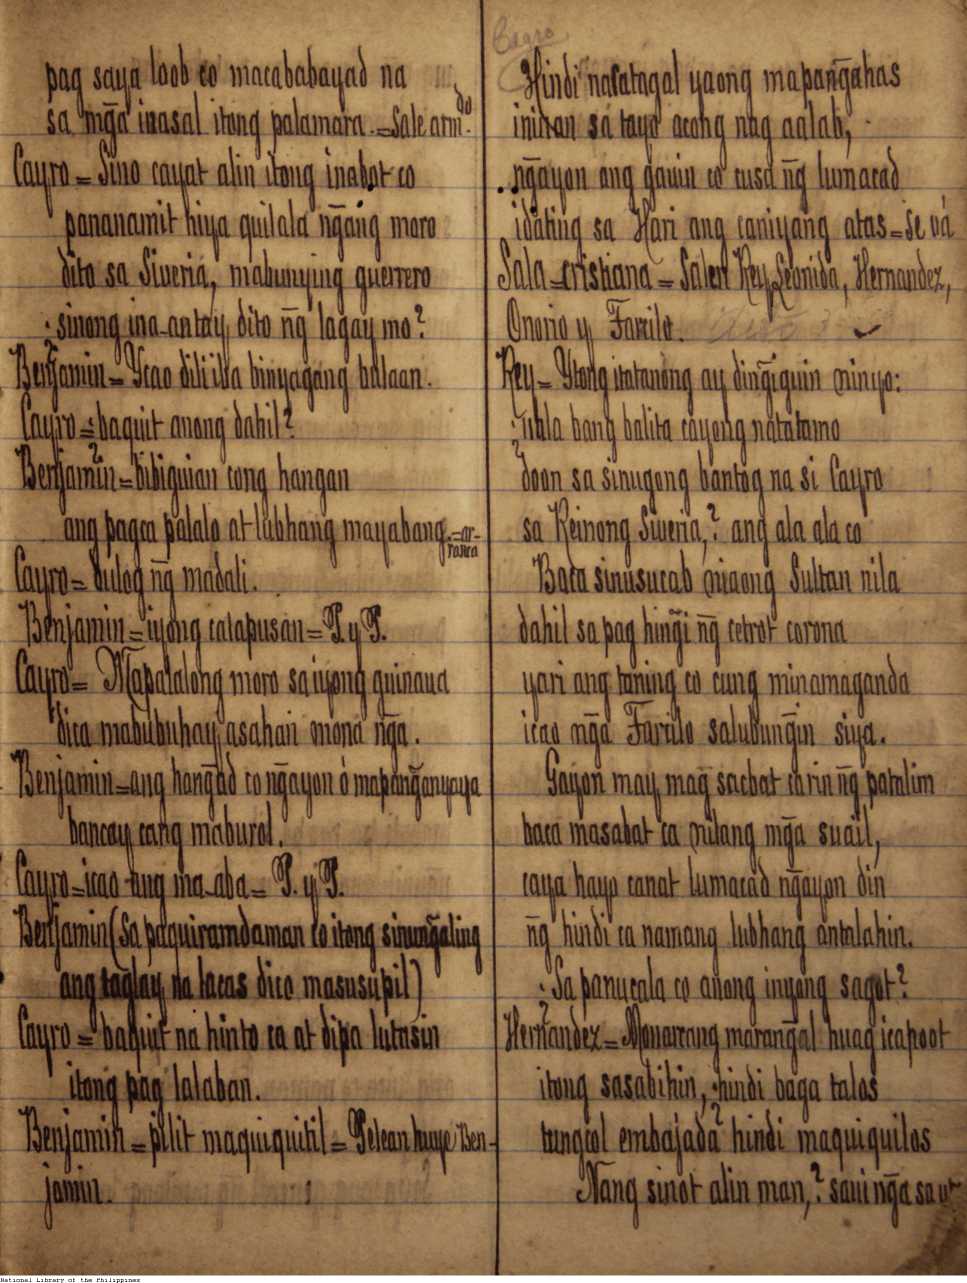 pag saya loob co macababayad na
sa mg̃a inasal itong palamara.=Sale armdo.
Cayro = Sino cayat alin itong inabot co
pananamit niya quilala ng̃ang moro
dito sa Siveria, mabunying guerrero
sinong ina-antay dito ng̃ lagay mo?
Benjamin = Ycao dili iba binyagang balaan.
Cayro = baquit anong dahil?
Benjamin = bibiguian cong hangan
ang pagca palalo at lubhang mayabang.=ar-
ranca
Cayro = bulog ng̃ madali.
Benjamin = iyong catapusan = P. y P.
Cayro = Mapalalong moro sa iyong guinaua
dica mabubuhay asahan mona ng̃a.
Benjamin = ang hang̃ad co ng̃ayon ó mapang̃anyaya
bancay cang maburol.
Cayro = icao ang ma-aba = P. y P.
Benjamin (Sa paquiramdaman co itong sinung̃aling
ang taglay na lacas dico masusupil)
Cayro = baquit na hinto ca at dipa lutasin
itong pag lalaban.
Benjamin = pilit maquiquitil = Pelean huye Ben-
jamin.
Cayro
Hindi nacatagal yaong mapang̃ahas
ininan sa tayo acong nag aalab,
ng̃ayon ang gauin co cusa ng̃ lumacad
idating sa Hari ang caniyang atas = Se vá
Sala = cristiana = Salen Rey Leonida, Hernandez,
Onorio y Farcilo.
Rey = Ytong itatanong ay ding̃iguin ninyo:
uala bang balita cayong natatamo
doon sa sinugong bantog na si Cayro
sa Reinong Siveria,? ang ala ala co
Baca sinusucab niaong Sultan nila
dahil sa pag hing̃i ng̃ cetrot corona
yari ang toning co cung minamaganda
icao ng̃a Farcilo salubung̃in siya.
Gayon may mag sacbat carin ng̃ patalim
baca masabat ca nilang mg̃a suail,
caya hayo canat lumacad ng̃ayon din
ng̃ hindi ca namang lubhang antalahin.
Sa panucala co anong inyong sagot?
Hernandez = Monarcang marang̃al huag icapoot
itong sasabihin, hindi baga talos
tungcol embajada hindi maquiquilos
Nang sinot alin man,? saui ng̃a sa
National Library of the Philippines